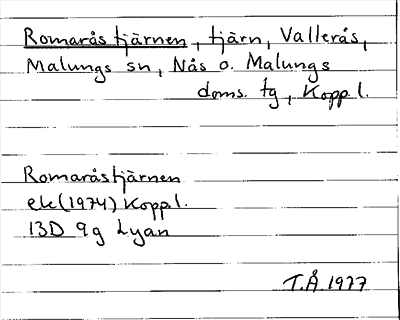 Romaråstjärnen, tjärn, Vallerås,
Malungs sn, Nås o. Malungs
doms. tg, Koppl.
Romaråstjärnen
ek (1974) Koppl.
13D 9g Lyan
T.Å 1977